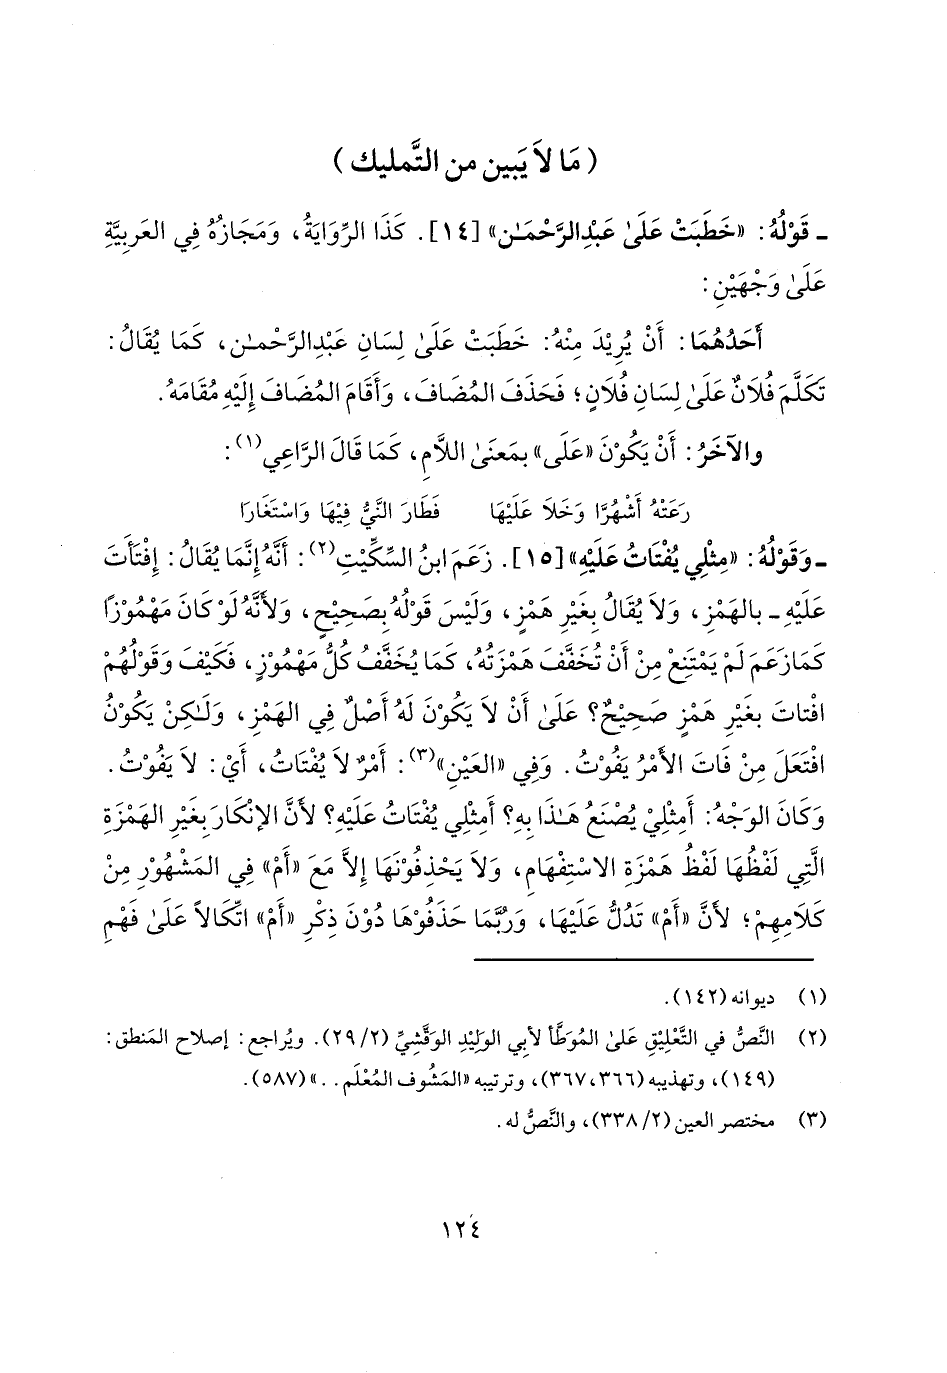 ( مَا لاَ يَبين من التَّمليك )
ـ قَوْلُهُ: «خَطَبَتْ عَلَىٰ عَبْدِالرَّحْمَـٰن» [١٤]. كَذَا الرِّوَايَةُ، وَمَجَازُهُ فِي العَرَبِيَّةِ
عَلَىٰ وَجْهَيْنِ:
أَحَدُهُمَا: أَنْ يُرِيْدَ مِنْهُ: خَطَبَتْ عَلَىٰ لِسَانِ عَبْدِالرَّحْمـٰن، كَمَا يُقَالُ:
تَكَلَّمَ فُلَانٌ عَلَىٰ لِسَانِ فُلَانٍ؛ فَحَذَفَ المُضَافَ، وَأَقَامَ المُضَافَ إِلَيْهِ مُقَامَهُ.
والآخَرُ: أَنْ يَكُوْنَ «عَلَى» بِمَعنَىٰ اللَّامِ، كَمَا قَالَ الرَّاعِي(١):
رَعَتْهُ أَشْهُرًا وَخَلاَ عَلَيْهَا فَطَارَ النَّيُّ فِيْهَا وَاسْتَغَارَا
ـ وَقَوْلُهُ: «مِثْلِي يُفْتَاتُ عَلَيْهِ» [١٥]. زَعَمَ ابنُ السِّكِّيْتِ(٢): أَنَّهُ إِنَّمَا يُقَالُ: إِفْتَأَتَ
عَلَيْهِ ـ بالهَمْزِ، وَلاَ يُقَالُ بِغَيْرِ هَمْزٍ، وَلَيْسَ قَوْلُهُ بِصَحِيْحٍ، وَلأَنَّهُ لَوْ كَانَ مَهْمُوْزًا
كَمَا زَعَمَ لَمْ يَمْتَنِعْ مِنْ أَنْ تُخَفَّفَ هَمْزَتُهُ، كَمَا يُخَفَّفُ كُلُّ مَهْمُوْزٍ، فَكَيْفَ وَقَولُهُمْ
افْتاتَ بِغَيْرِ هَمْزٍ صَحِيْحٌ؟ عَلَىٰ أَنْ لاَ يَكُوْنَ لَهُ أَصْلٌ فِي الهَمْزِ، وَلَـٰكِنْ يَكُوْنُ
افْتَعَلَ مِنْ فَاتَ الأَمْرُ يَفُوْتُ. وَفِي «العَيْنِ»(٣): أَمْرٌ لاَ يُفْتَاتُ، أَيْ: لاَ يَفُوْتُ.
وَكَانَ الوَجْهُ: أَمِثْلِيْ يُصْنَعُ هَـٰذَا بِهِ؟ أَمِثْلِي يُفْتَاتُ عَلَيْهِ؟ لأَنَّ الإنْكَارَ بِغَيْرِ الهَمْزَةِ
الَّتِي لَفْظُهَا لَفْظُ هَمْزَةِ الاسْتِفْهَامِ، وَلاَ يَحْذِفُوْنَهَا إِلاَّ مَعَ «أَمْ» فِي المَشْهُوْرِ مِنْ
كَلَامِهِمْ؛ لأَنَّ «أَمْ» تَدُلُّ عَلَيْهَا، وَرُبَّمَا حَذَفُوْهَا دُوْنَ ذِكْرِ «أَمْ» اتِّكَالاً عَلَىٰ فَهْمِ
(١) ديوانه (١٤٢).
(٢) النَّصُّ في التَّعْلِيْقِ عَلَىٰ المُوَطَّأ لأبي الوَلِيْدِ الوَقَّشِيِّ (٢/ ٢٩). ويُراجع: إصلاح المَنطق:
(١٤٩)، وتهذيبه (٣٦٦، ٣٦٧)، وترتيبه «المَشُوف المُعْلَم. . .» (٥٨٧).
(٣) مختصر العين (٢/ ٣٣٨)، والنَّصُّ له.
١٢٤